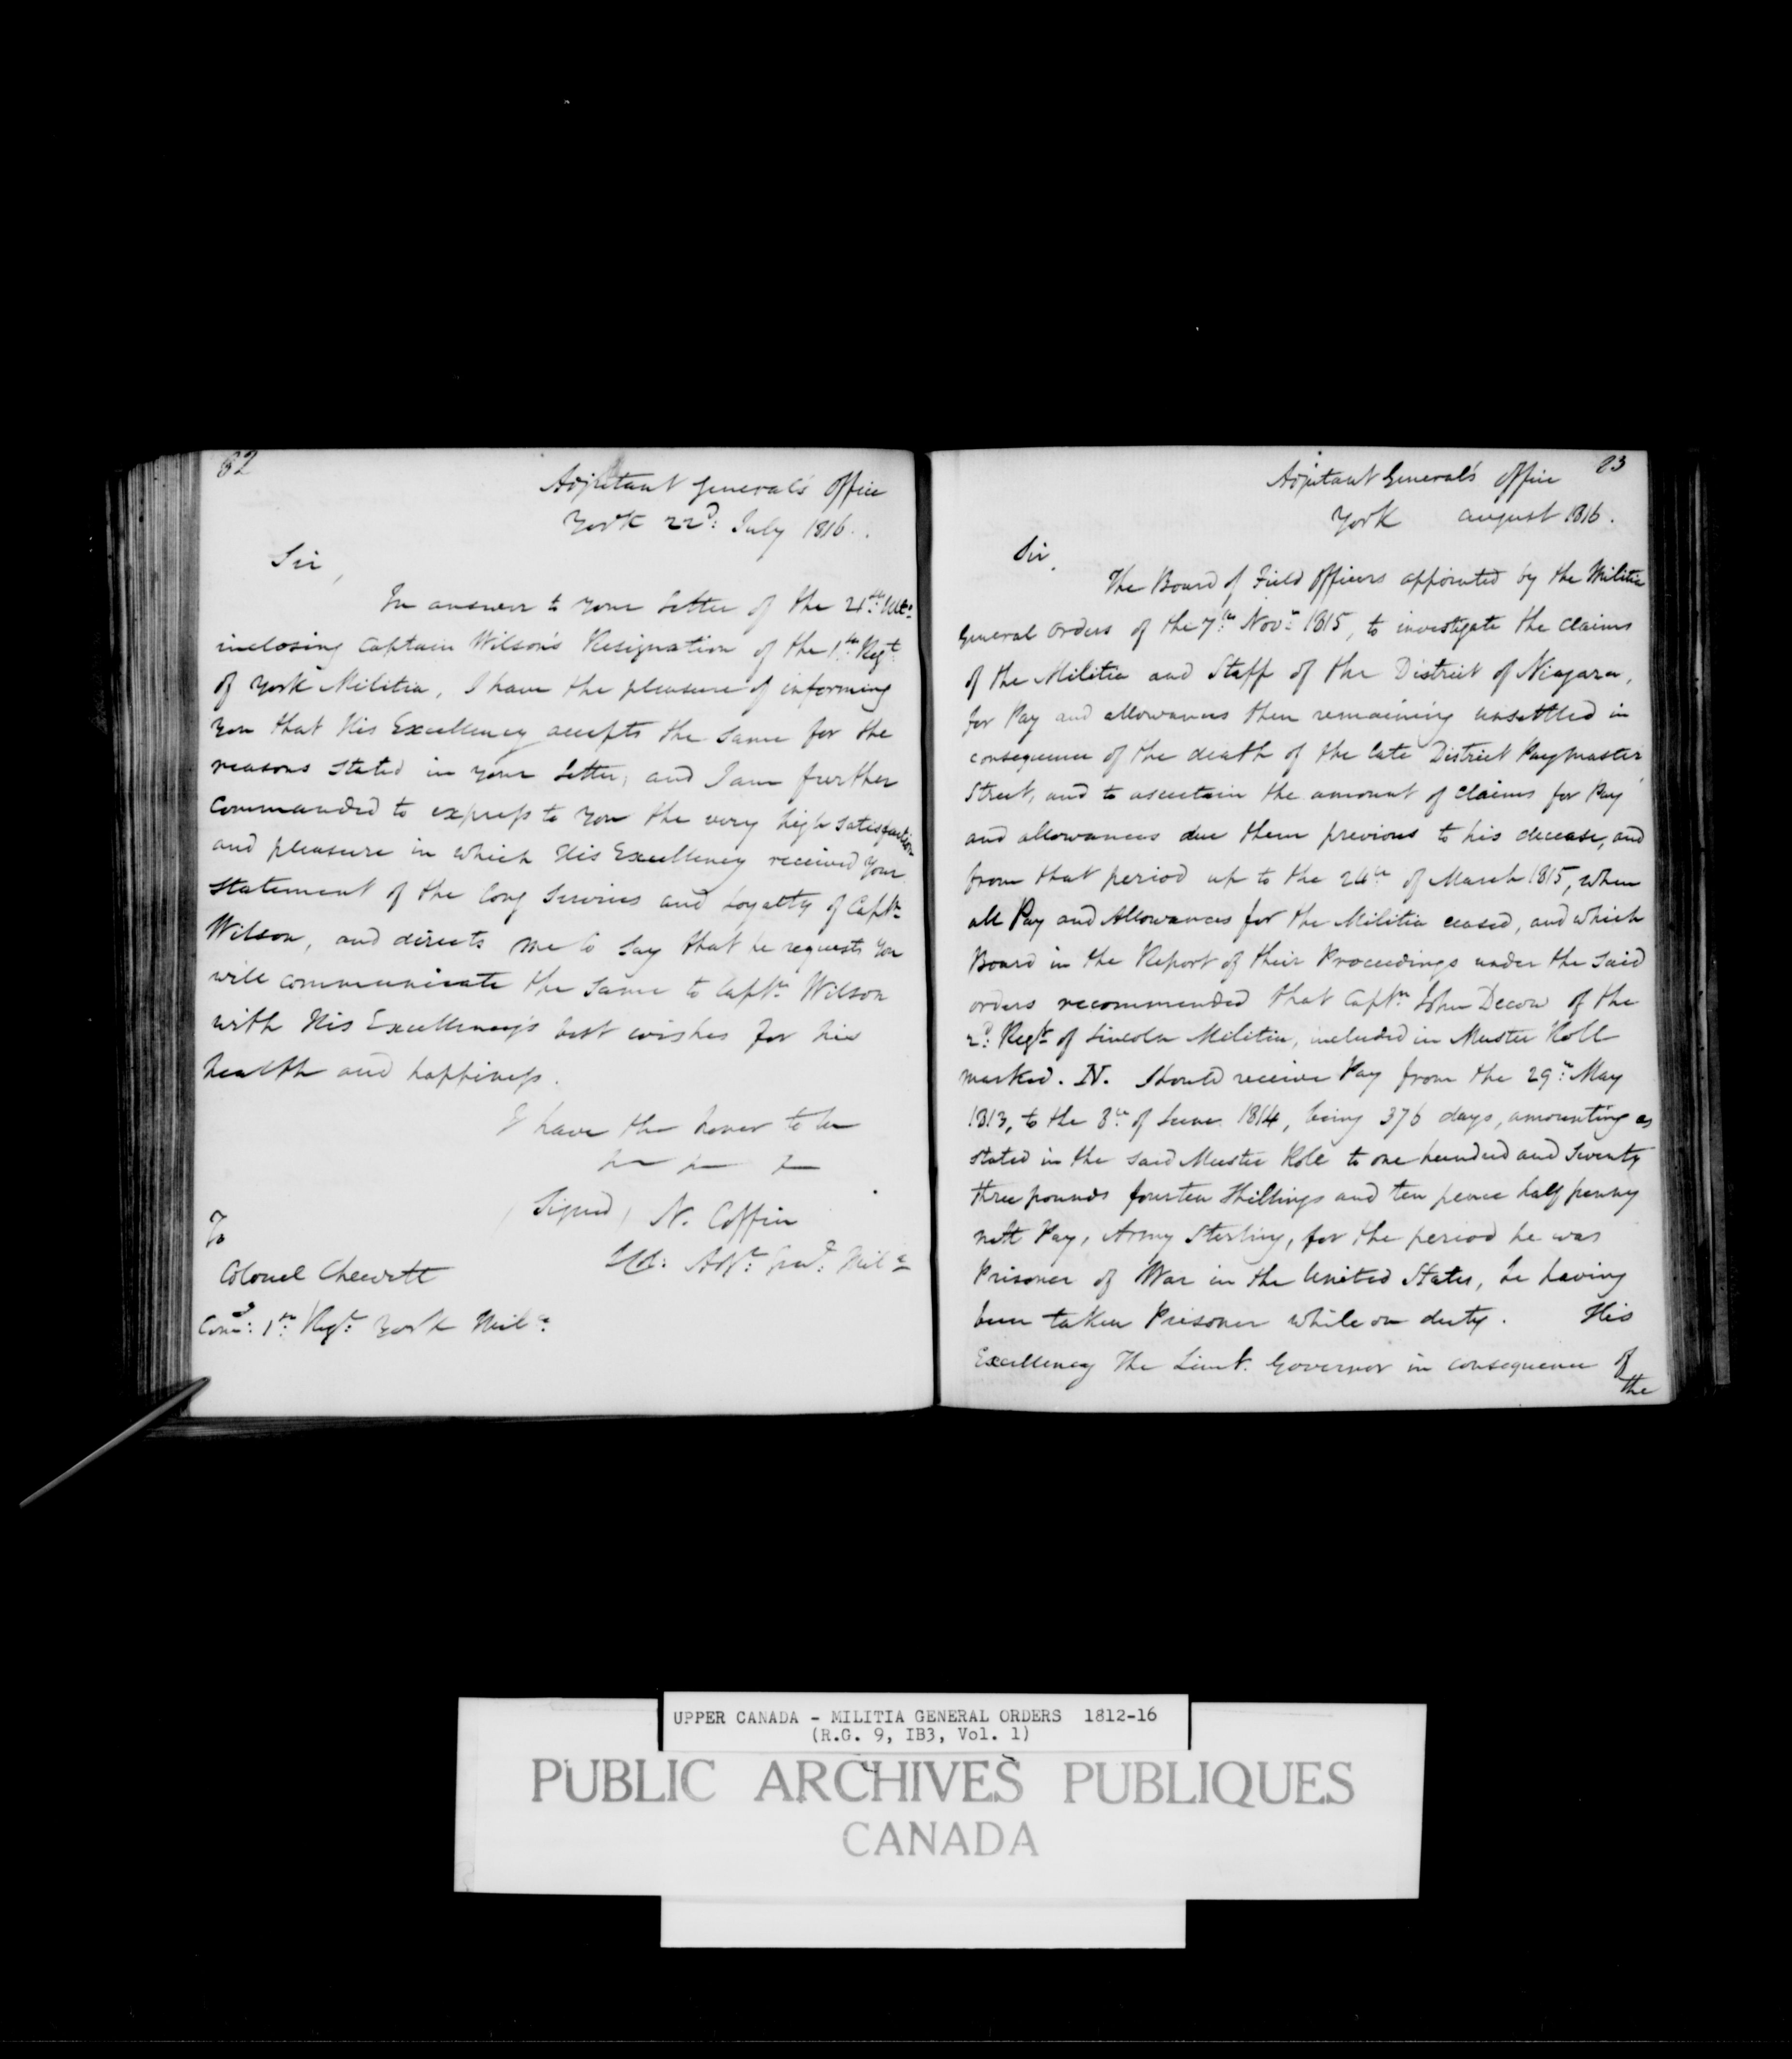 82
Adjutant General's Office
York 22d: July 1816.
Sir,
In answer to your Letter of the 21st: Ulto:
inclosing Captain Wilson's Resignation of the 1st: Regt:
of York Militia, I have the pleasure of informing
you that His Excellency accepts the same for the
reasons stated in your Letter, and I am further
Commanded to express to you the very high satisfaction
and pleasure in which His Excellency received your
statement of the long services and Loyalty of Captn:
Wilson, and directs me to say that he requests you
will communicate the same to Captn: Wilson
with His Excellency's best wishes for his
health and happiness.
I have the honor to be
Signed, N. Coffin
Adjt: Genl: Mila
To
Colonel Chewett
Comg: 1st: Regt: York Mila:
83
Adjutant General's Office
York August 1816.
Sir,
The Board of Field Officers appointed by the Militia
General Orders of the 7th: Novr: 1815, to investigate the claims
of the Militia and Staff of the District of Niagara,
for Pay and allowances then remaining unsettled in
consequence of the death of the late District Paymaster
Street, and to ascertain the amount of claims for Pay
and allowances due them previous to his decease, and
from that period up to the 24th of March 1815, when
all Pay and Allowances for the Militia ceased, and which
Board in the Report of their Proceedings under the said
orders recommended that Captn John Decow of the
2d: Regt of Lincoln Militia, included in Muster Roll
marked. N. Should receive Pay from the 29th: May
1813, to the 8th: of June 1814, being 376 days, amounting as
stated in the said Muster Role to one hundred and seventy
three pounds fourteen shillings and ten pence half penny
nett Pay, Army Sterling, for the period he was
Prisoner of War in the United States, he having
been taken Prisoner while on duty. His
Excellency The Lieut. Governor in consequence of
the
UPPER CANADA - MILITIA GENERAL ORDERS 1812-16
(R.G. 9, IB3, Vol. 1)
PUBLIC ARCHIVES PUBLIQUES
CANADA